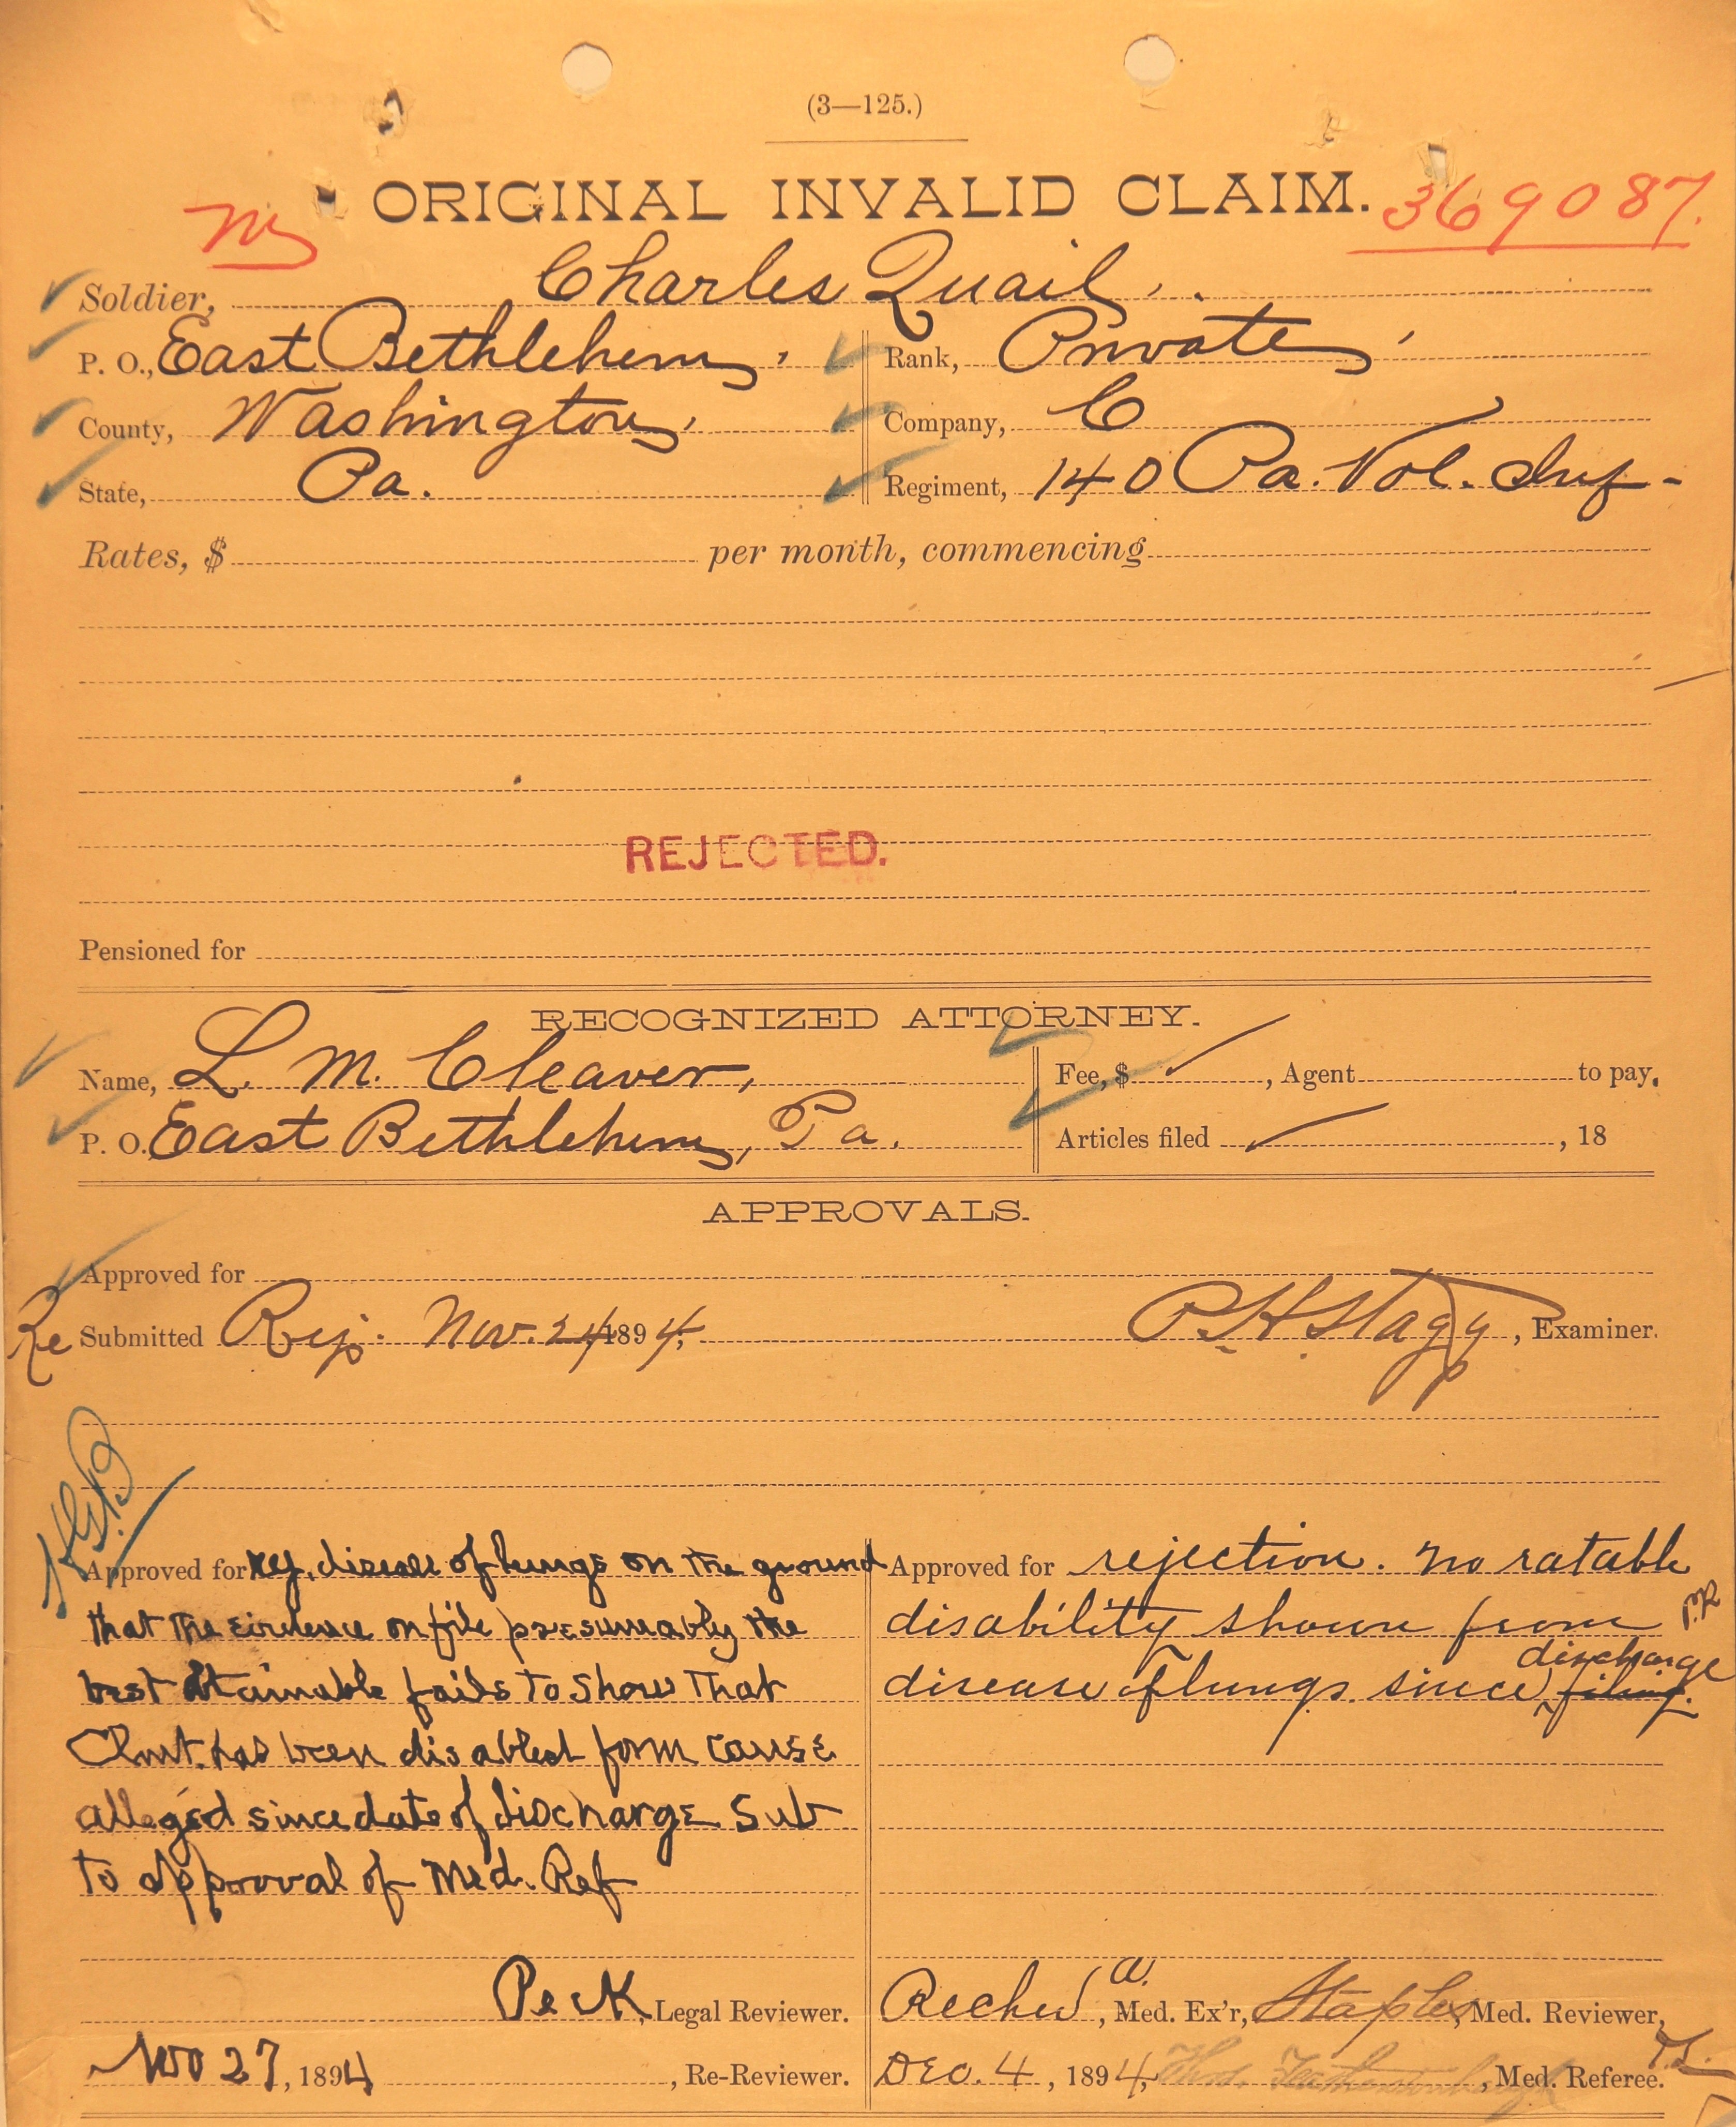 (3—125.)
ORIGINAL INVALID CLAIM. 369087.
Soldier, Charles Quail.
P. O., East Bethlehem, Rank, Private,
County, Washington, Company, C
State, Pa. Regiment, 140 Pa. Vol. Inf-
Rates, $ per month, commencing
REJECTED.
Pensioned for
RECOGNIZED ATTORNEY.
Name, L. M. Cleaver, Fee, $ , Agent to pay.
P. O. East Bethlehem, Pa. Articles filed , 18
APPROVALS.
Approved for
Re Submitted Rej. Nov. 24 1894, P. H. Stagg, Examiner.
Approved for rej. disease of lungs on the ground Approved for rejection. No ratable
that the evidence on file presumably the disability shown from
best obtainable fails to show that disease of lungs since discharge filing.
Clmt. has been disabled form cause
alleged since date of discharge Sub
to approval of Med. Ref
Peck, Legal Reviewer. , Med. Ex'r, Staples, Med. Reviewer,
Nov 27, 1894 , Re-Reviewer. Dec. 4, 1894, Med. Referee.